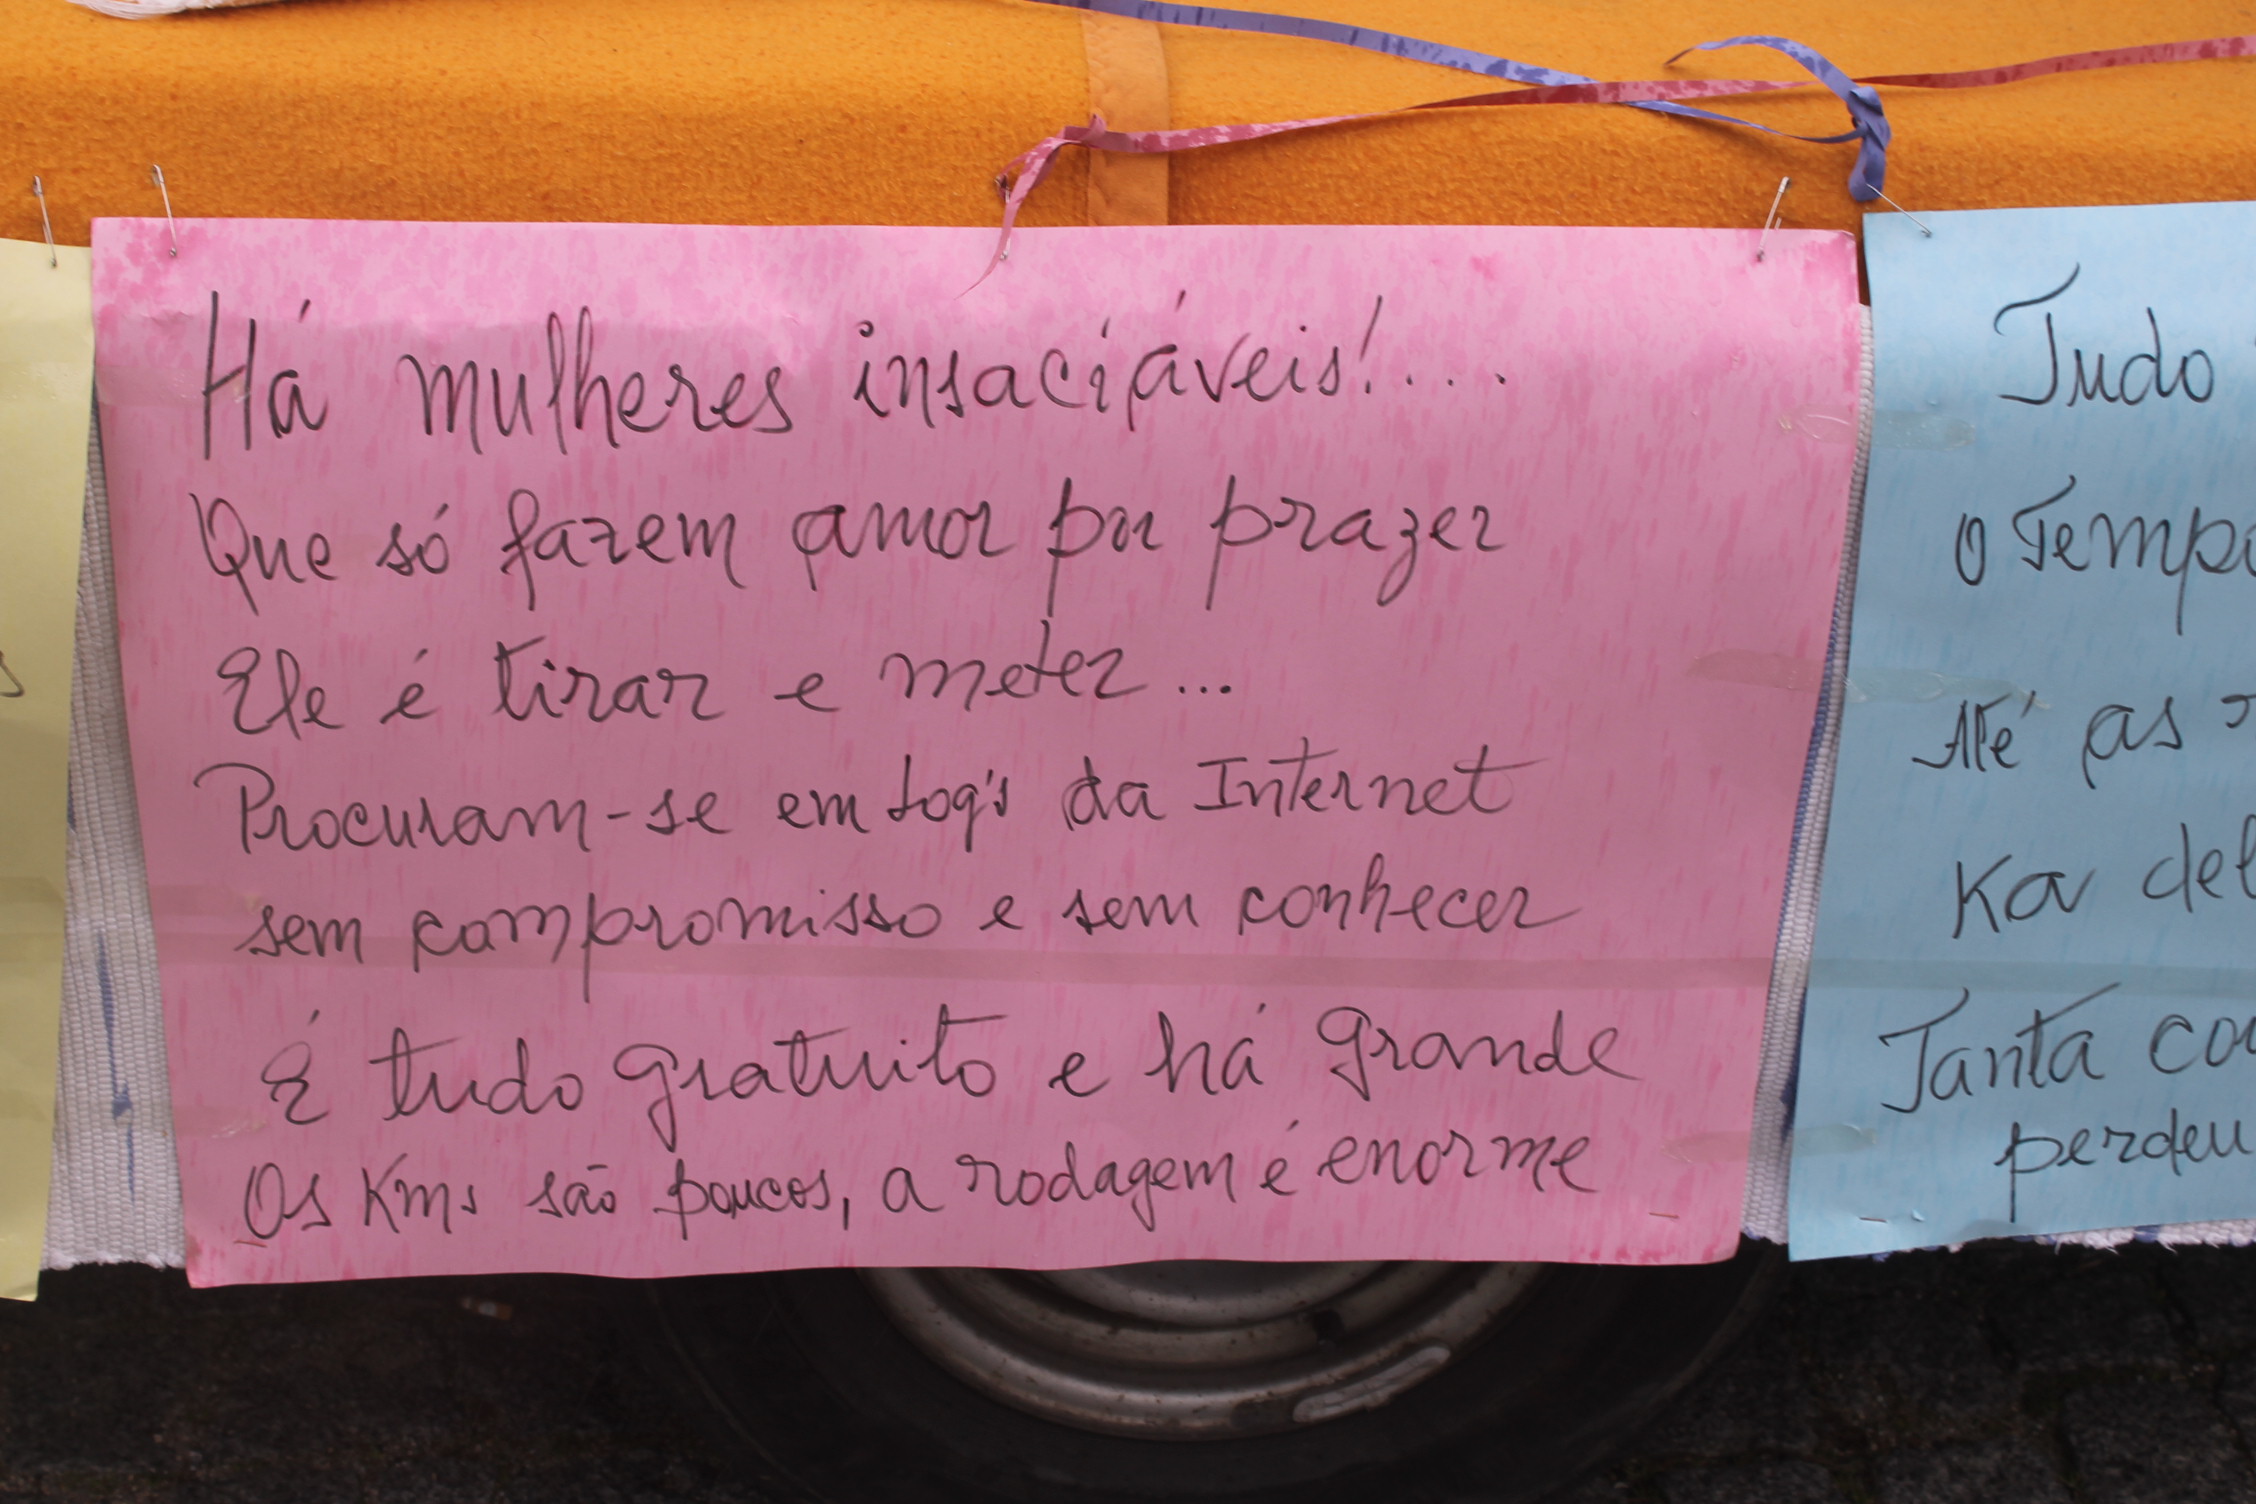 Há mulheres insaciáveis!....
Que só fazem amor por prazer
Ele é tirar e meter...
Procuram-se em log's da Internet
sem compromisso e sem conhecer
É tudo gratuito e há grande
Os Kms são poucos, a rodagem é enorme
Tudo
O Tempo
Até as
Ka del
Tanta co
perdeu